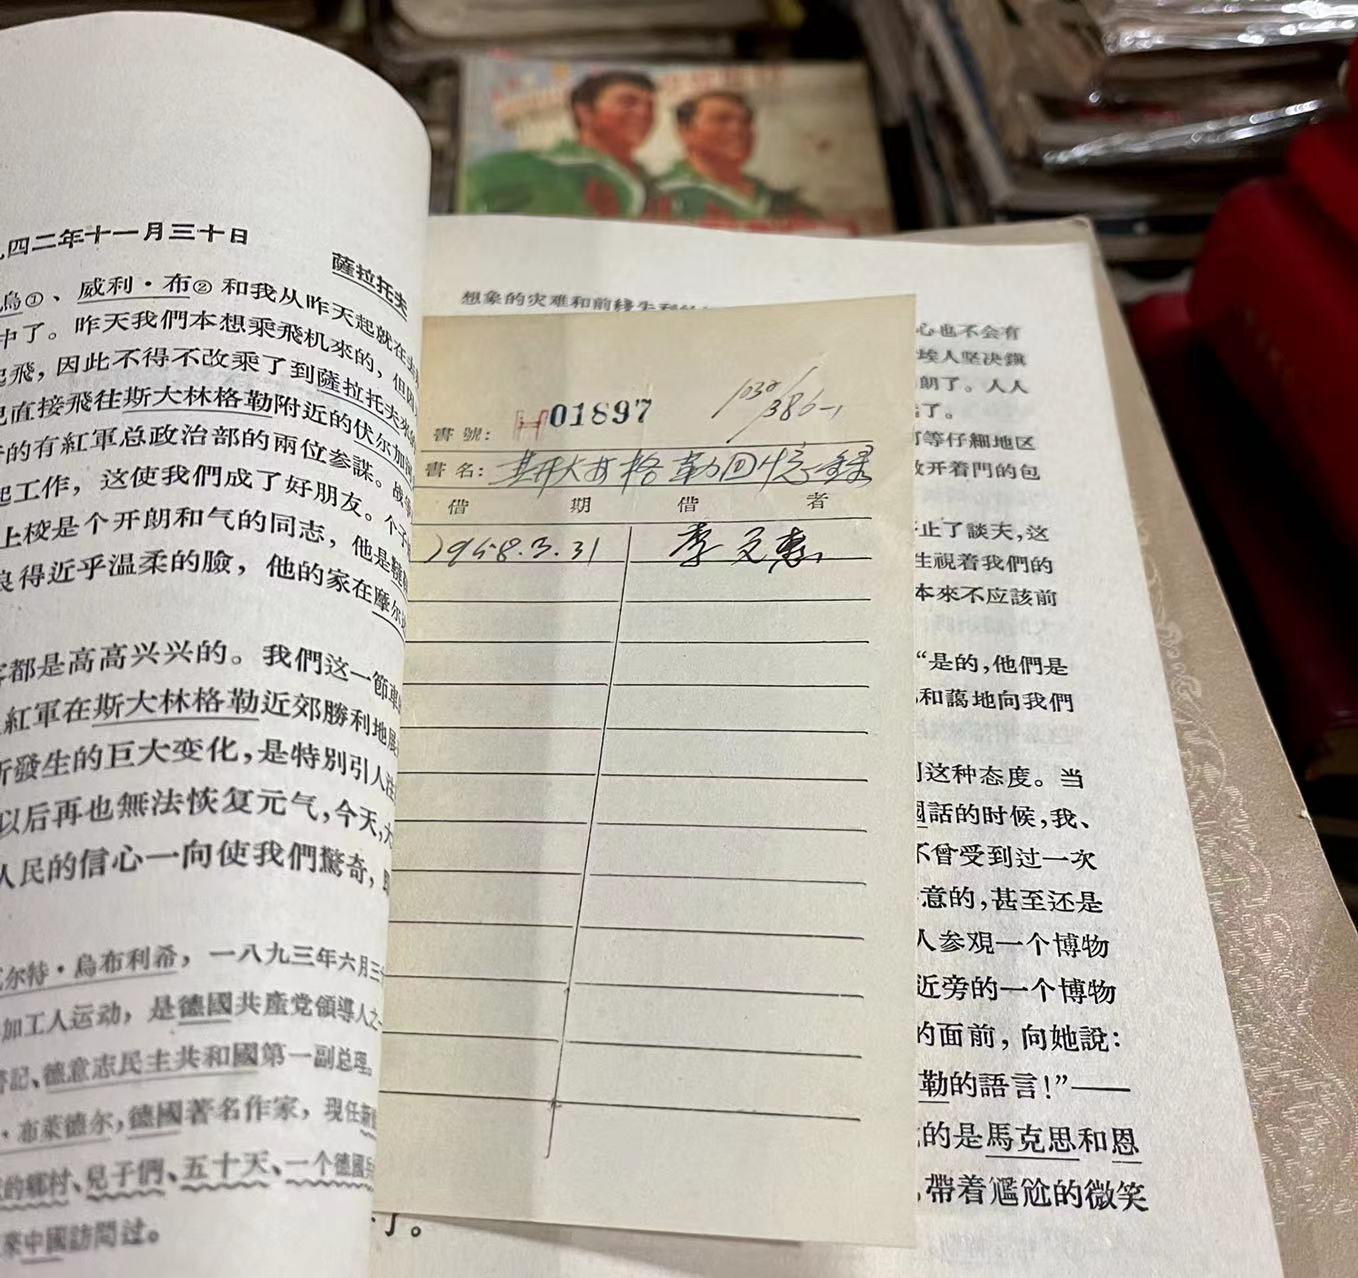 四二年十一月三十日
薩拉托夫
烏①、威利·布②和我从昨天起就在
中了。昨天我們本想乘飛机來的，但因
起飛，因此不得不改乘了到薩拉托夫來的
已直接飛往斯大林格勒附近的伏尔加
的有紅軍总政治部的兩位参謀。战爭
起工作，这使我們成了好朋友。个子
上校是个开朗和气的同志，他是
良得近乎温柔的臉，他的家在摩尔
客都是高高兴兴的。我們这一節車
紅軍在斯大林格勒近郊勝利地展
所發生的巨大变化，是特別引人注
以后再也無法恢复元气，今天，
人民的信心一向使我們驚奇，即
瓦尔特·烏布利希，一八九三年六月三十
加工人运动，是德國共產党領導人之一
書記、德意志民主共和國第一副总理。
·布萊德尔，德國著名作家，現任
的鄉村、兒子們、五十天、一个德國兵
來中國訪問过。
想象的灾难和前綫失利
書號：
01897
1030/386-1
書名：
斯大林格勒回忆錄
借期
借者
1958.3.31
李文惠
心也不会有
埃人坚决鎮
朗了。人人
了。
等仔細地区
敞开着門的包
停止了談天，这
生視着我們的
本來不应該前
“是的，他們是
和藹地向我們
这种态度。当
國話的时候，我、
不曾受到过一次
意的，甚至还是
人参观一个博物
近旁的一个博物
的面前，向她說：
勒的語言！”——
的是馬克思和恩
帶着尷尬的微笑
了。